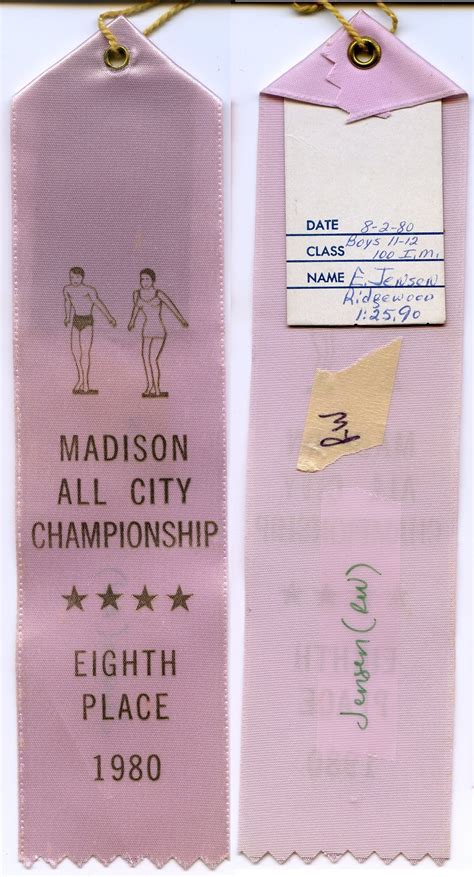 MADISON
ALL CITY
CHAMPIONSHIP
★★★★
EIGHTH
PLACE
1980
DATE 8-2-80
CLASS Boys 11-12
100 I.M.
NAME E. Jenson
Ridgewood
1:25.90
RW
Jensen (RW)